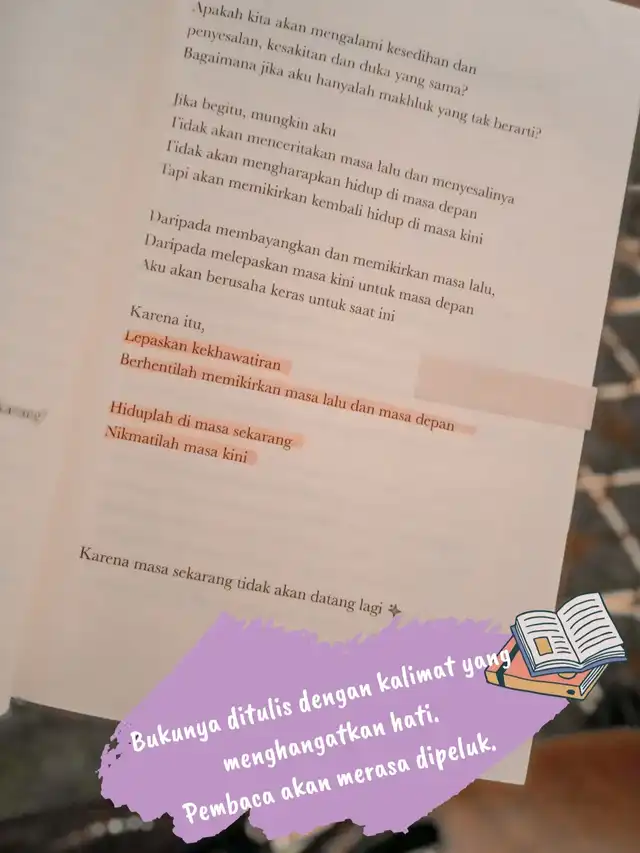 Apakah kita akan mengalami kesedihan dan
penyesalan, kesakitan dan duka yang sama?
Bagaimana jika aku hanyalah makhluk yang tak berarti?
Jika begitu, mungkin aku
Tidak akan menceritakan masa lalu dan menyesalinya
Tidak akan mengharapkan hidup di masa depan
Tapi akan memikirkan kembali hidup di masa kini
Daripada membayangkan dan memikirkan masa lalu,
Daripada melepaskan masa kini untuk masa depan
Aku akan berusaha keras untuk saat ini
Karena itu,
Lepaskan kekhawatiran
Berhentilah memikirkan masa lalu dan masa depan
Hiduplah di masa sekarang
Nikmatilah masa kini
Karena masa sekarang tidak akan datang lagi
Bukunya ditulis dengan kalimat yang
menghangatkan hati.
Pembaca akan merasa dipeluk.